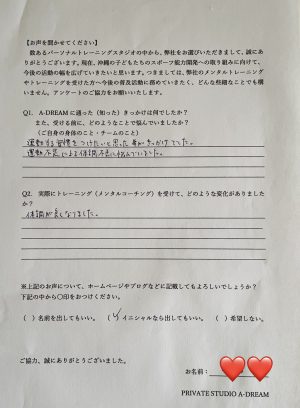 【お声を聞かせてください】
数あるパーソナルトレーニングスタジオの中から、弊社をお選びいただきまして、誠にあ
りがとうございます。現在、沖縄の子どもたちのスポーツ能力開発への取り組みに向けて、
今後の活動の幅を広げていきたいと思います。つきましては、弊社のメンタルトレーニング
やトレーニングを受けた方へ今後の普及活動に務めていきたく、どんな些細なことでも構
いません、アンケートのご協力をお願いいたします。
Q1. A-DREAMに通った（知った）きっかけは何でしたか？
また、受ける前に、どのようなことで悩んでいましたか？
（ご自身の身体のこと・チームのこと）
運動する習慣をつけたいと思った事がきっかけでした。
運動不足による体調不良に悩んでいました。
Q2. 実際にトレーニング（メンタルコーチング）を受けて、どのような変化がありました
か？
体調が良くなりました。
※上記のお声について、ホームページやブログなどに記載してもよろしいでしょうか？
下記の中から〇印をおつけください。
（ ）名前を出してもいい。 （✓）イニシャルなら出してもいい。 （ ）希望しない。
ご協力、誠にありがとうございました。
お名前：
PRIVATE STUDIO A-DREAM